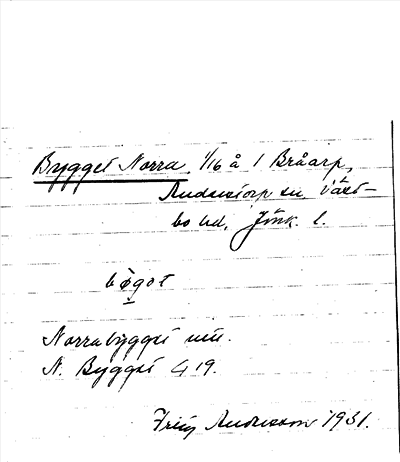 Bygget Norra, 1/16 å 1 Bråarp,
Anderstorp sn, Väst-
bo hd, Jönk. l.
bø̀got
Norrabygget
N. Bygget G 19.
Andersson 1931.